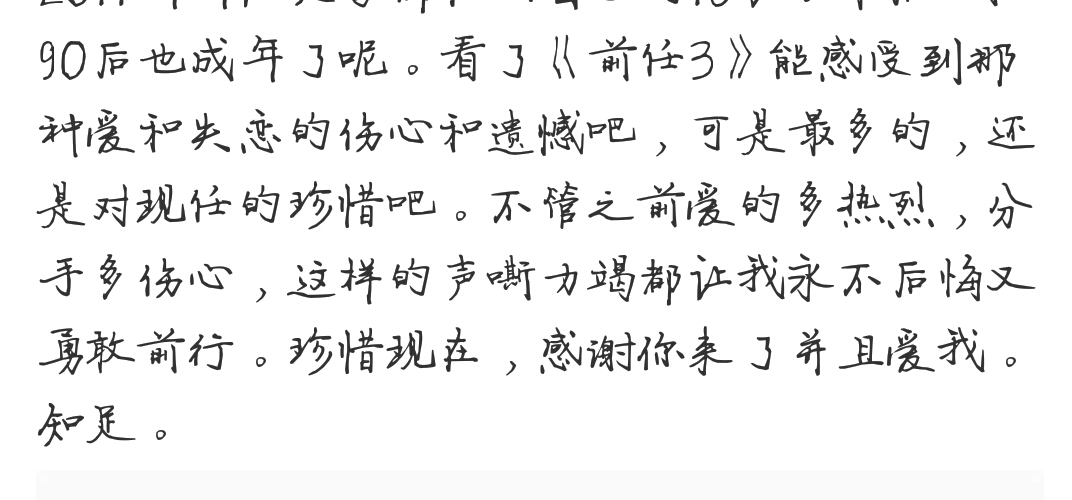 90后也成年了呢。看了《前任3》能感受到那
种爱和失恋的伤心和遗憾吧，可是最多的，还
是对现任的珍惜吧。不管之前爱的多热烈，分
手多伤心，这样的声嘶力竭都让我永不后悔又
勇敢前行。珍惜现在，感谢你来了并且爱我。
知足。